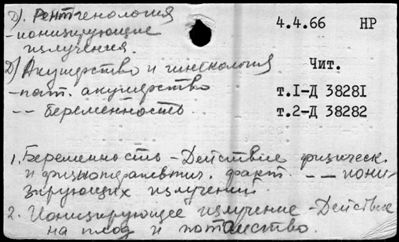 2). Рентгенология
-ионизирующие
излучения.
4.4.66 НР
Д) Акушерство и гинекология
Чит.
-пат. акушерство
т.I-Д 38281
-- беременность.
т.2-Д 38282
1. Беременность -Действие физическ.
и физиотерапевтич. факт. -- иони-
зирующих излучений
2. Ионизирующее излучение -Действие
на плод и потомство.